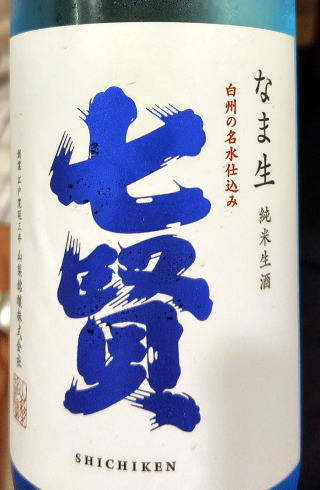 なま生
純米生酒
白州の名水仕込み
七賢
創業江戸寛延三年 山梨銘醸株式会社
SHICHIKEN